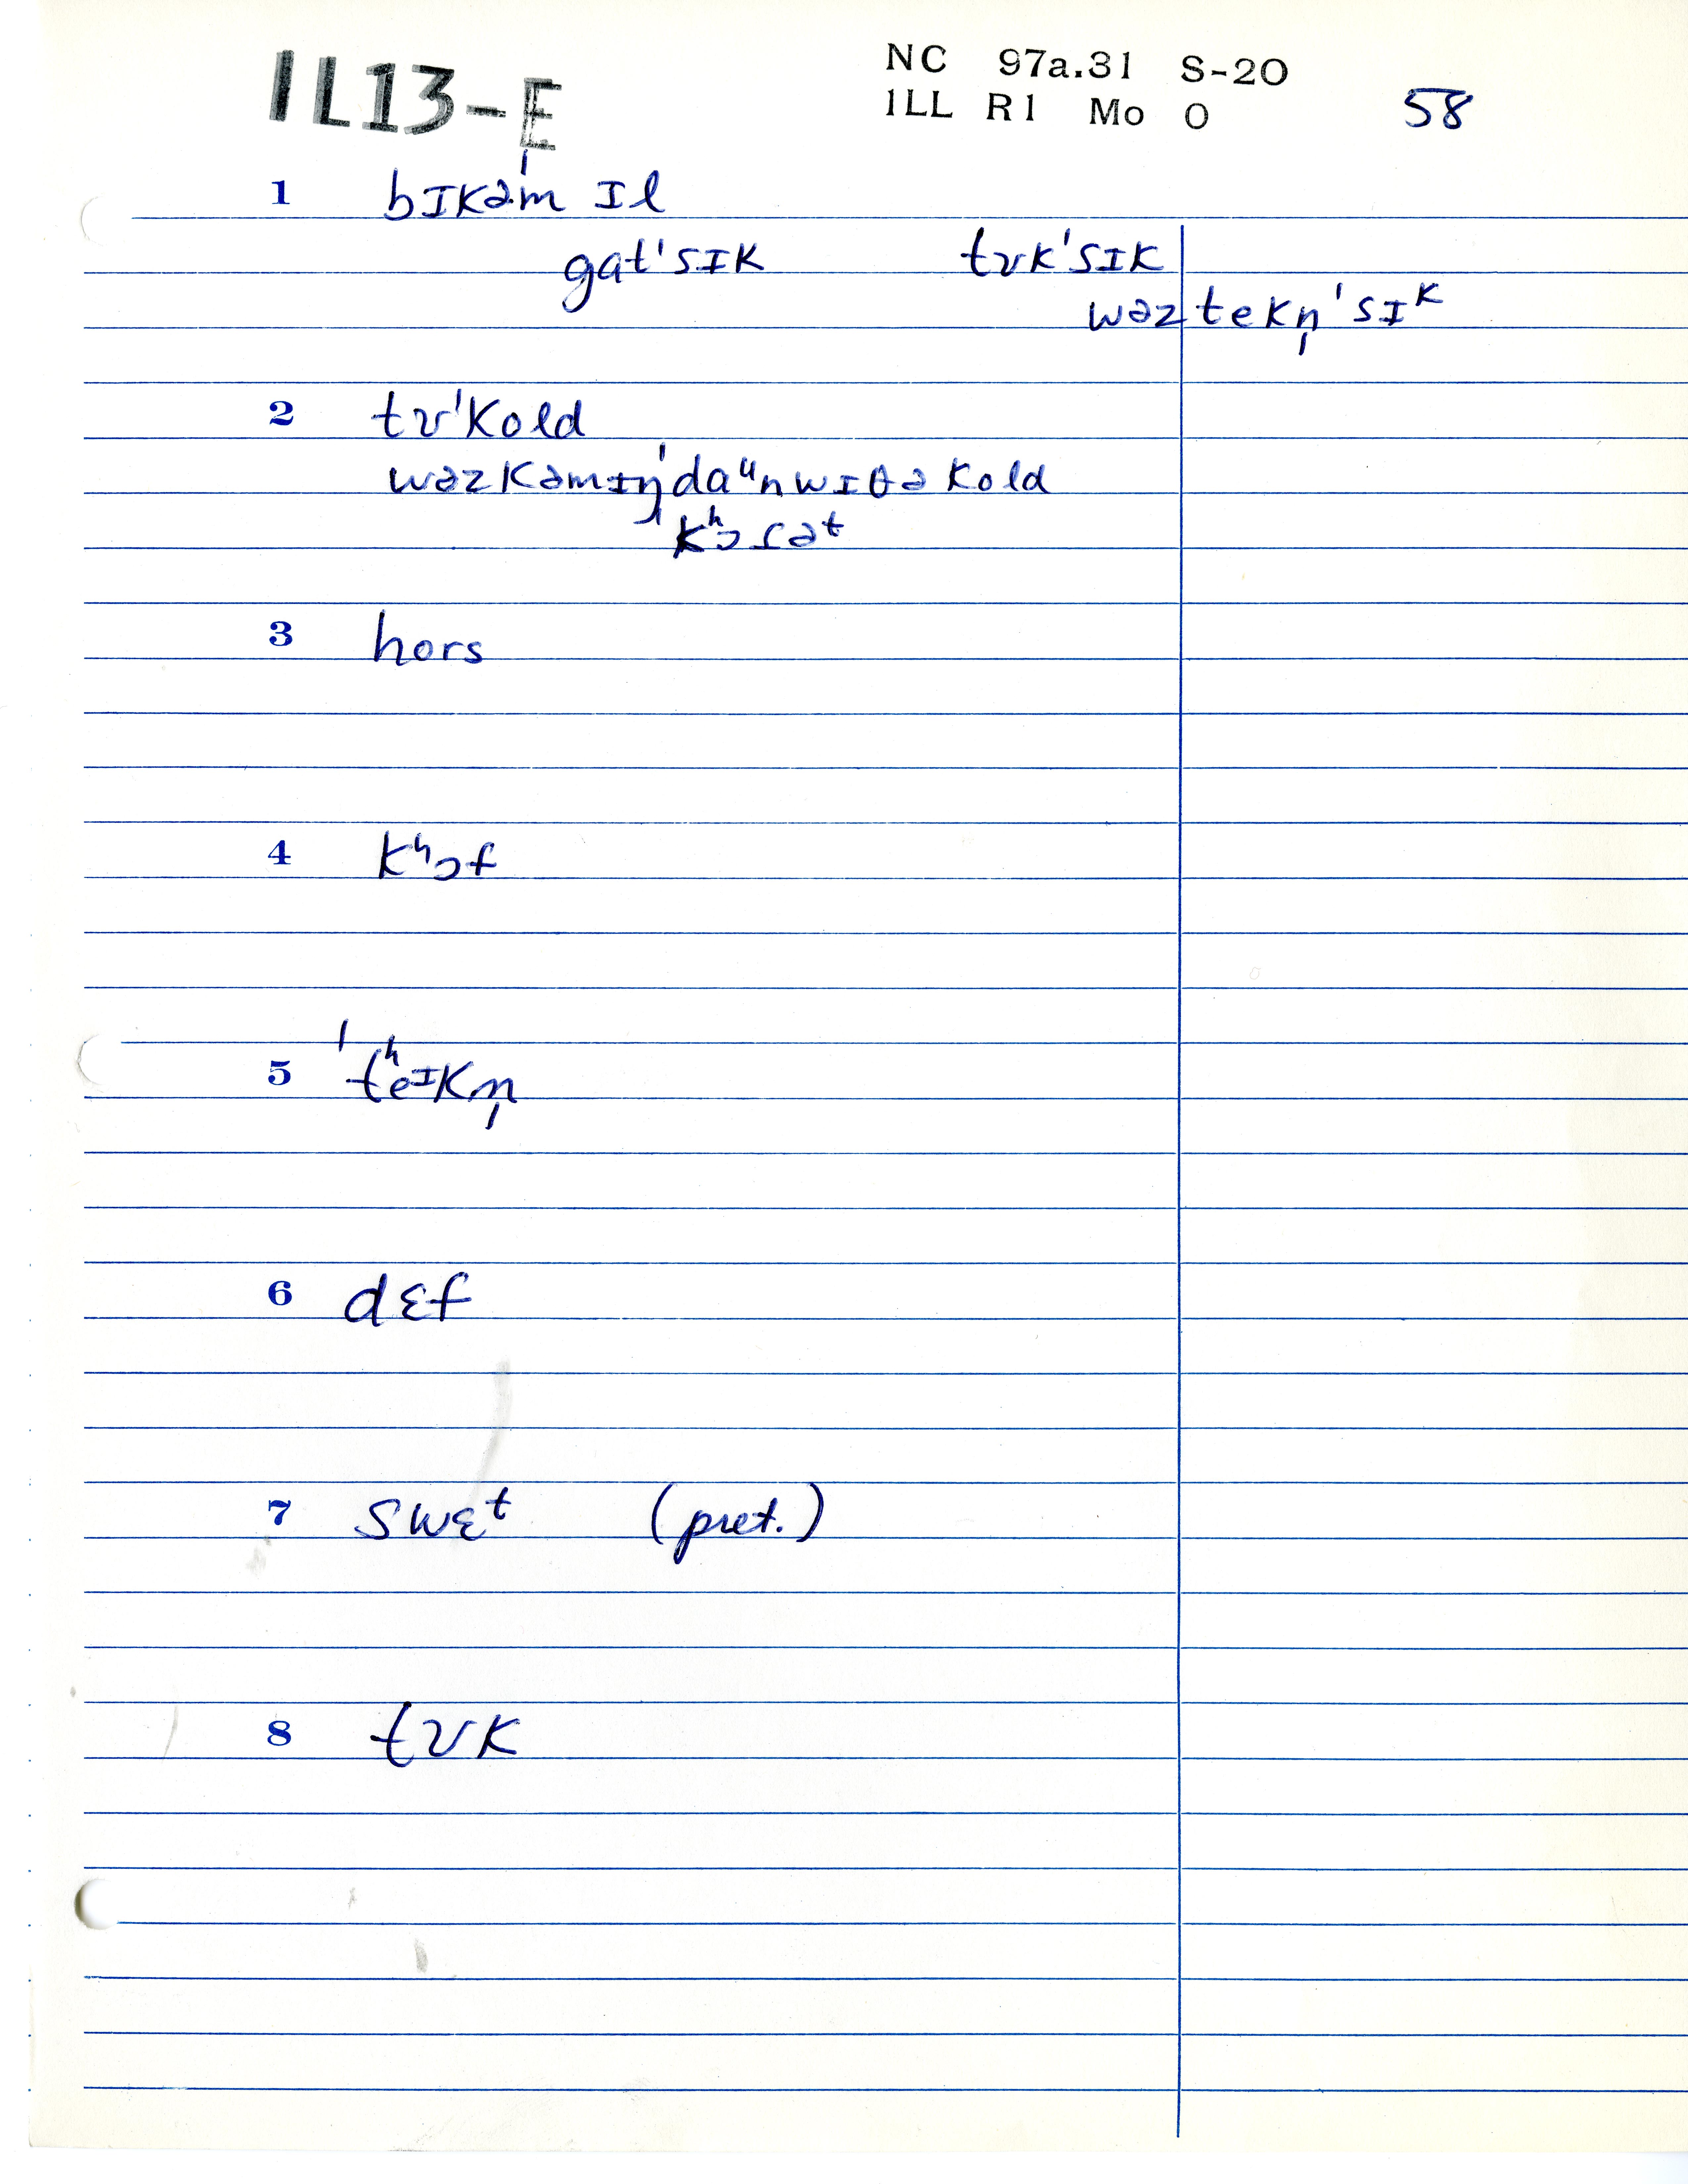 IL13-E
NC 97a.31 S-20
1LL R1 Mo O 58
1 bɪkəˈm ɪl
gatˈsɪk tʊkˈsɪk
wəztekn̩ˈsɪᵏ
2 tʊˈkold
wəzkəmɪŋˈdaᵘnwɪθəkold
kʰɔſəᵗ
3 hors
4 kʰɔf
5 ˈtʰeᶦkn̩
6 dɛf
7 swɛᵗ (pret.)
8 tʊk